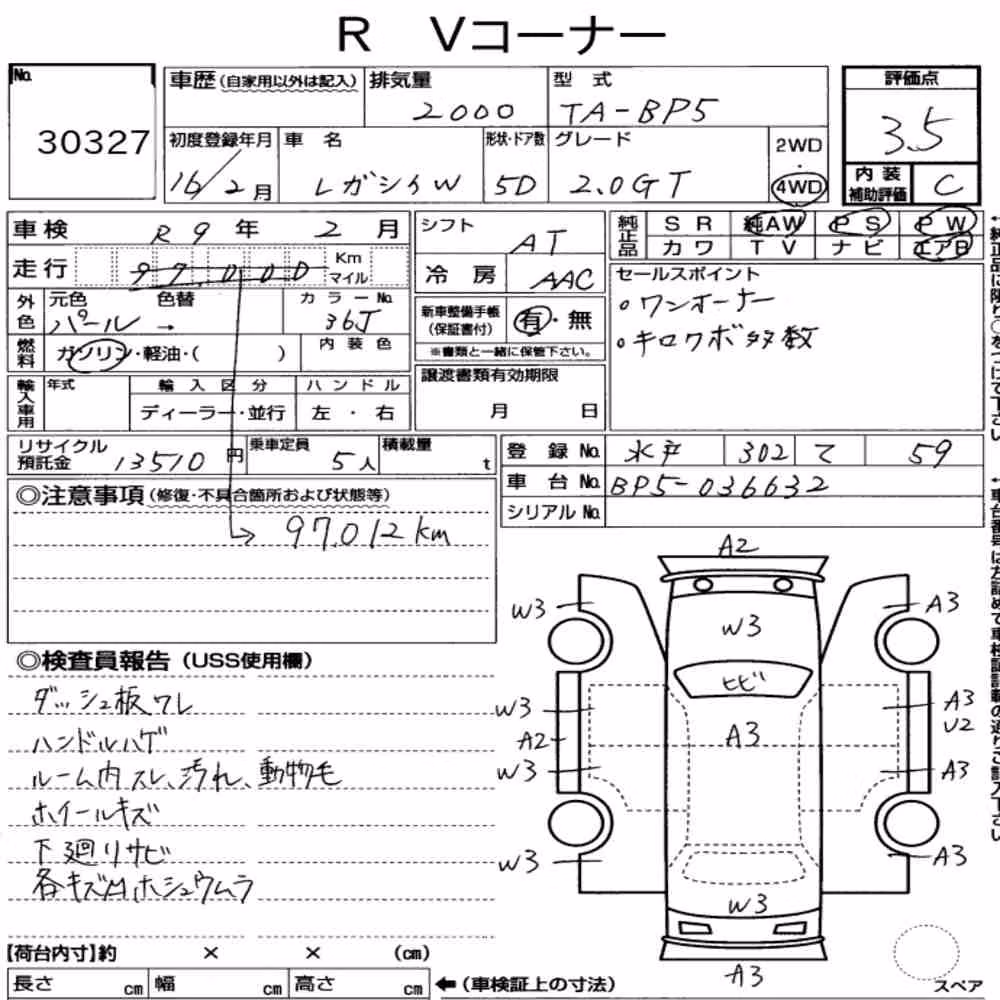 R Vコーナー
No.
30327
車歴(自家用以外は記入) 排気量 2000 型式 TA-BP5
初度登録年月 16/2月 車名 レガシィW 形状・ドア数 5D グレード 2.0GT 2WD・4WD
評価点 3.5
内装補助評価 C
車検 R9年 2月
走行 97,000 Km マイル
シフト AT
冷房 AAC
純正品 SR 純AW PS PW
カワ TV ナビ エアB
外色 元色 パール 色替 → カラーNo. 36J
燃料 ガソリン・軽油・( ) 内装色
新車整備手帳(保証書付) 有・無
※書類と一緒に保管下さい。
セールスポイント
・ワンオーナー
・キロクボ多数
輸入車用 年式 輸入区分 ハンドル
ディーラー・並行 左・右
譲渡書類有効期限
月 日
リサイクル預託金 13510円 乗車定員 5人 積載量 t
登録No. 水戸 302 て 59
車台No. BP5-036632
シリアルNo.
◎注意事項(修復・不具合箇所および状態等)
97,012km
◎検査員報告(USS使用欄)
ダッシュ板ワレ
ハンドルハゲ
ルーム内スレ、汚れ、動物毛
ホイールキズ
下廻リサビ
各キズ凹ホシュウムラ
A2
W3 A3
W3
ヒビ
W3 A3
U2
A2 A3
W3 A3
W3 A3
W3
A3
スペア
【荷台内寸】約 × × (cm)
長さ cm 幅 cm 高さ cm ←(車検証上の寸法)